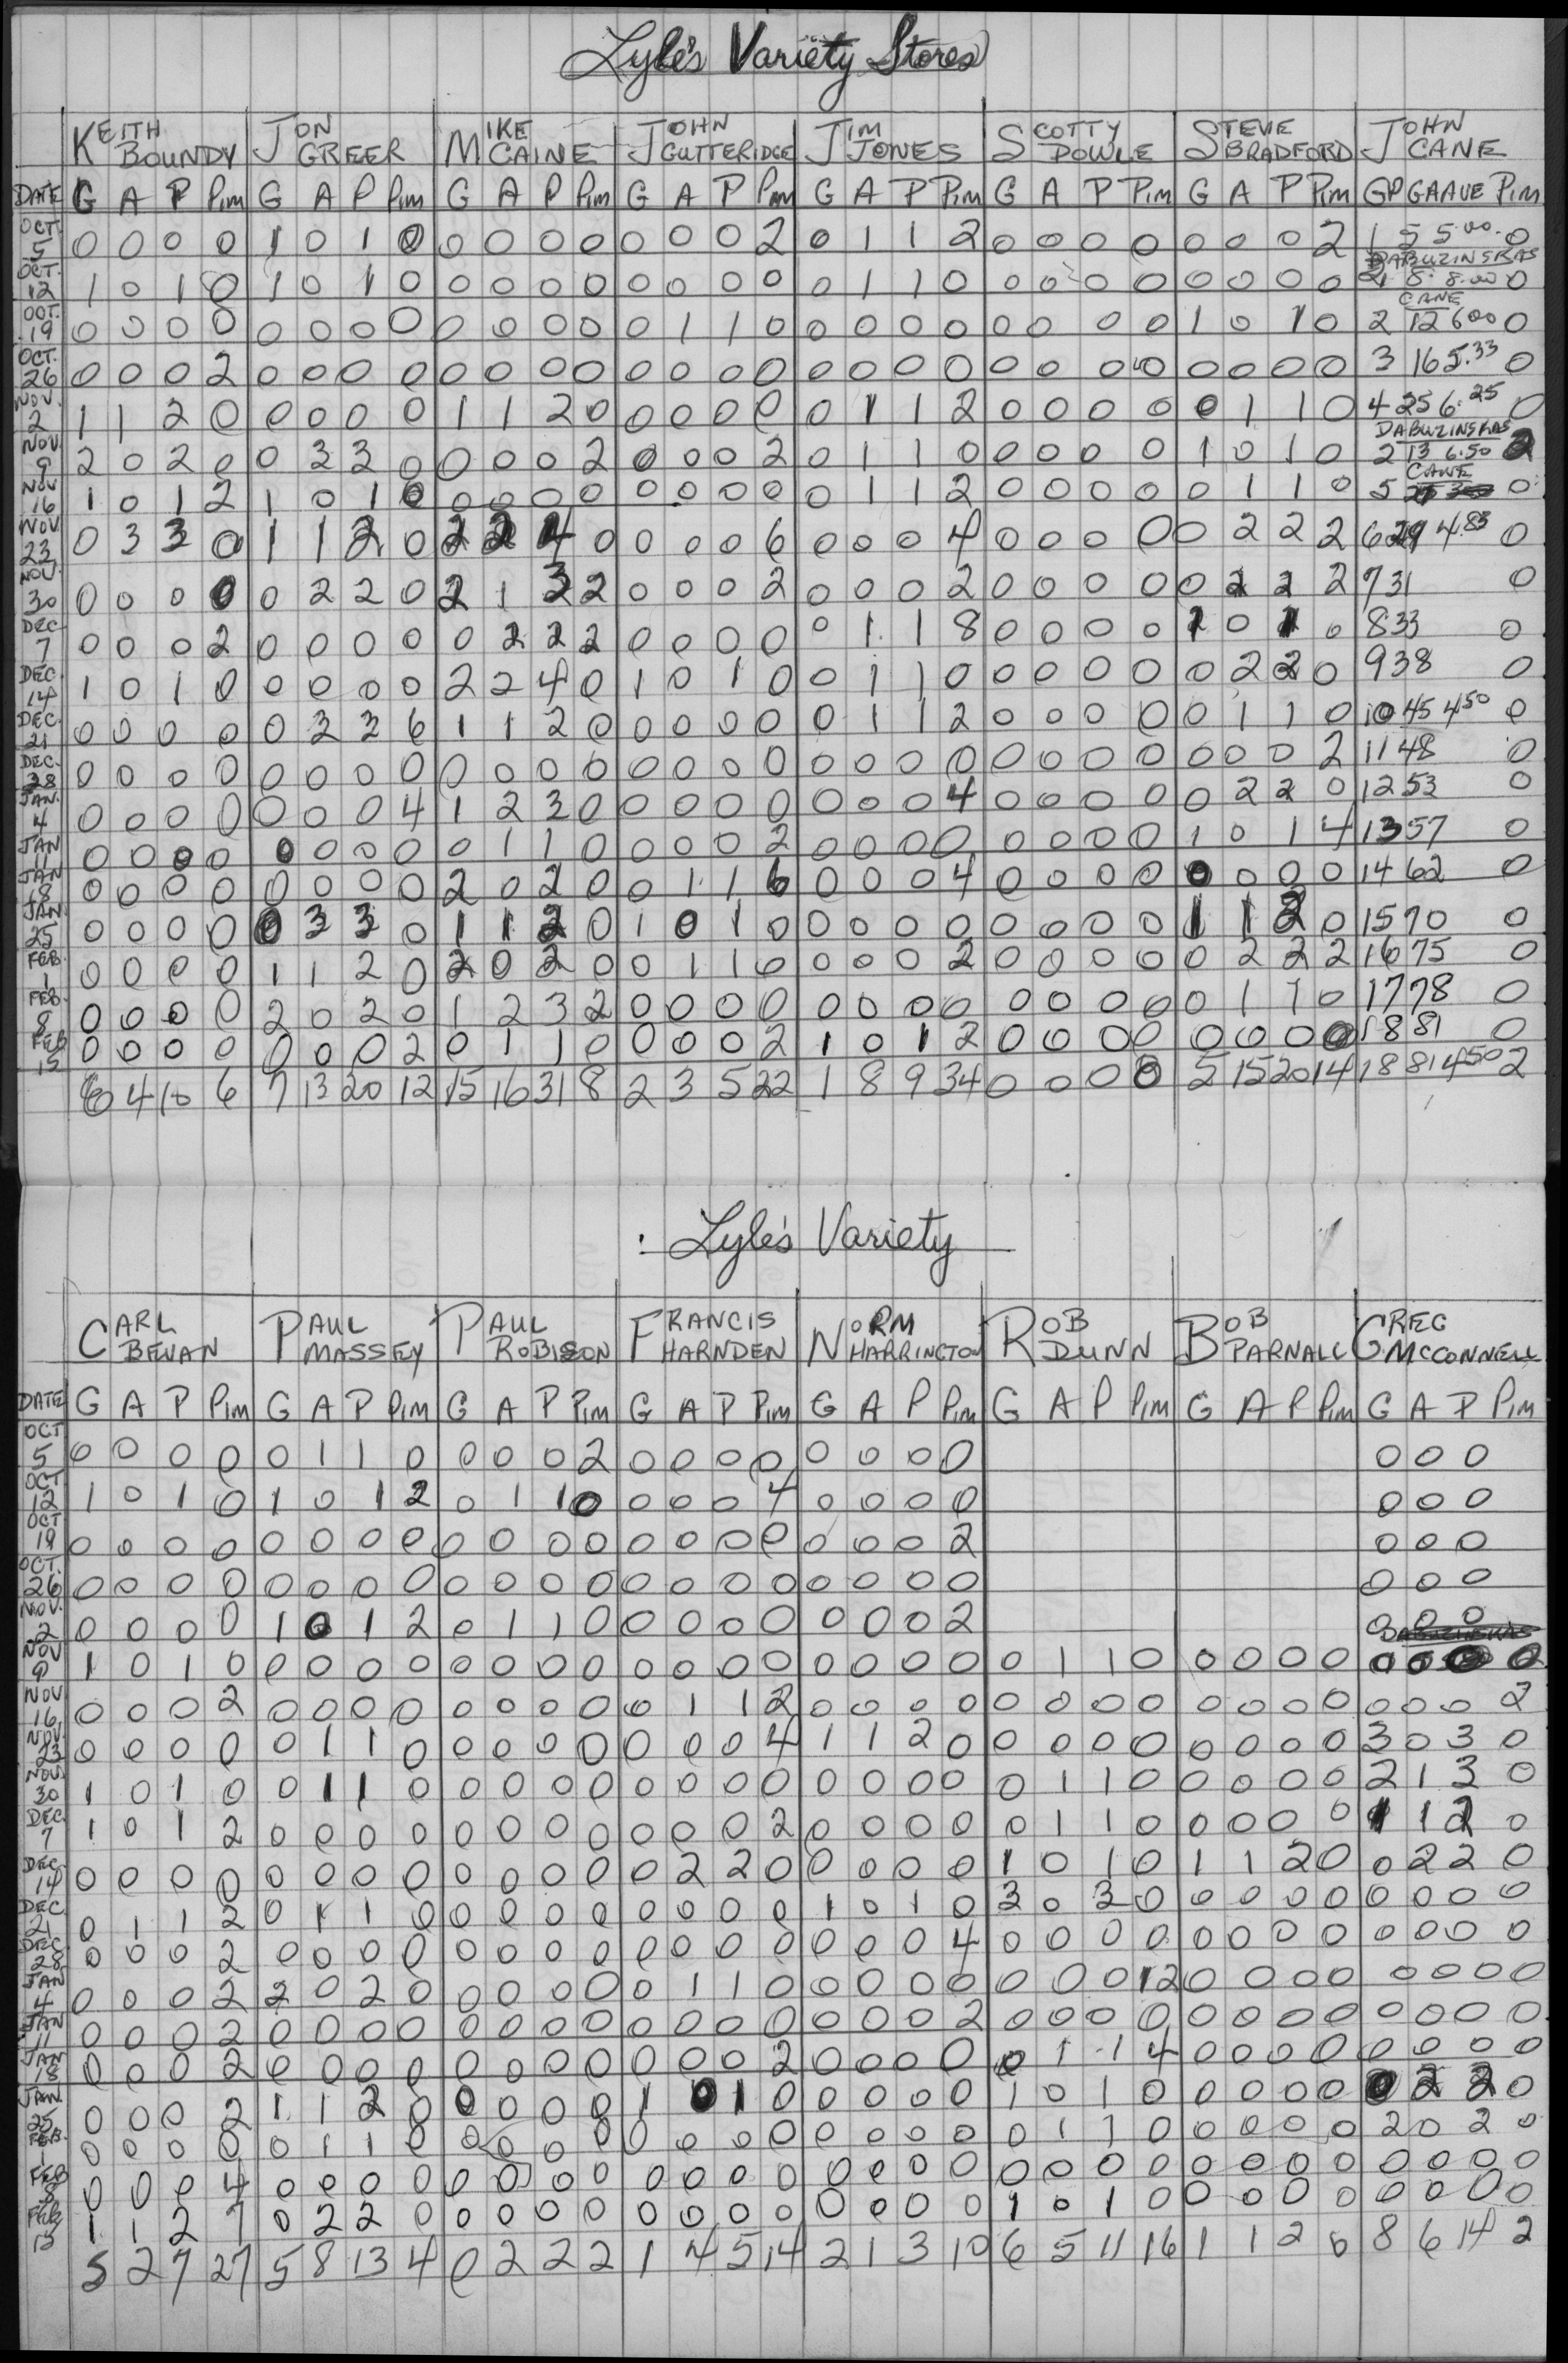 Lyle's Variety Stores
KEITH BOUNDY JON GREER MIKE CAINE JOHN GUTTERIDGE JIM JONES SCOTTY DOWLE STEVIE BRADFORD JOHN CANE
DATE G A P Pim G A P Pim G A P Pim G A P Pim G A P Pim G A P Pim G A P Pim GP GA AVE Pim
OCT. 5 0 0 0 0 1 0 1 0 0 0 0 0 0 0 0 2 0 1 1 2 0 0 0 0 0 0 0 2 1 5 5.00 0
DABUZINSKAS
OCT. 12 1 0 1 0 1 0 1 0 0 0 0 0 0 0 0 0 0 1 1 0 0 0 0 0 0 0 0 0 8 8.00 0
CANE
OCT. 19 0 0 0 0 0 0 0 0 0 0 0 0 0 1 1 0 0 0 0 0 0 0 0 0 1 0 1 0 2 12 6.00 0
OCT. 26 0 0 0 2 0 0 0 0 0 0 0 0 0 0 0 0 0 0 0 0 0 0 0 0 0 0 0 0 3 16 5.33 0
NOV. 2 1 1 2 0 0 0 0 0 1 1 2 0 0 0 0 0 0 1 1 2 0 0 0 0 0 1 1 0 4 25 6.25 0
DABUZINSKAS
NOV. 9 2 0 2 0 0 3 3 0 0 0 0 2 0 0 0 2 0 1 1 0 0 0 0 0 1 0 1 0 2 13 6.50 2
CANE
NOV 16 1 0 1 2 1 0 1 0 0 0 0 0 0 0 0 0 0 1 1 2 0 0 0 0 0 1 1 0 5 0
NOV. 23 0 3 3 0 1 1 2 0 2 2 4 0 0 0 0 6 0 0 0 4 0 0 0 0 0 2 2 2 6 29 4.83 0
NOV. 30 0 0 0 0 0 2 2 0 2 1 3 2 0 0 0 2 0 0 0 2 0 0 0 0 0 2 2 2 7 31 0
DEC 7 0 0 0 2 0 0 0 0 0 2 2 2 0 0 0 0 0 1 1 8 0 0 0 0 1 0 1 0 8 33 0
DEC. 14 1 0 1 0 0 0 0 0 2 2 4 0 1 0 1 0 0 1 1 0 0 0 0 0 0 2 2 0 9 38 0
DEC. 21 0 0 0 0 0 3 3 6 1 1 2 0 0 0 0 0 0 1 1 2 0 0 0 0 0 1 1 0 10 45 4.50 0
DEC. 28 0 0 0 0 0 0 0 0 0 0 0 0 0 0 0 0 0 0 0 0 0 0 0 0 0 0 0 2 11 48 0
JAN. 4 0 0 0 0 0 0 0 4 1 2 3 0 0 0 0 0 0 0 0 4 0 0 0 0 0 2 2 0 12 53 0
JAN 11 0 0 0 0 0 0 0 0 0 1 1 0 0 0 0 2 0 0 0 0 0 0 0 0 1 0 1 4 13 57 0
JAN 18 0 0 0 0 0 0 0 0 2 0 2 0 0 1 1 6 0 0 0 4 0 0 0 0 0 0 0 0 14 62 0
JAN 25 0 0 0 0 0 3 3 0 1 1 2 0 1 0 1 0 0 0 0 0 0 0 0 0 1 1 2 0 15 70 0
FEB. 1 0 0 0 0 1 1 2 0 2 0 2 0 0 1 1 0 0 0 0 2 0 0 0 0 0 2 2 2 16 75 0
FEB. 8 0 0 0 0 2 0 2 0 1 2 3 2 0 0 0 0 0 0 0 0 0 0 0 0 0 1 1 0 17 78 0
FEB 15 0 0 0 0 0 0 0 2 0 1 1 0 0 0 0 2 1 0 1 2 0 0 0 0 0 0 0 0 18 81 0
6 4 10 6 7 13 20 12 15 16 31 8 2 3 5 22 1 8 9 34 0 0 0 0 5 15 20 14 18 81 4.50 2
Lyle's Variety
CARL BEVAN PAUL MASSEY PAUL ROBISON FRANCIS HARNDEN NORM HARRINGTON ROB DUNN BOB PARNALL GREG MCCONNELL
DATE G A P Pim G A P Pim G A P Pim G A P Pim G A P Pim G A P Pim G A P Pim G A P Pim
OCT 5 0 0 0 0 0 1 1 0 0 0 0 2 0 0 0 0 0 0 0 0 0 0 0
OCT 12 1 0 1 0 1 0 1 2 0 1 1 0 0 0 0 4 0 0 0 0 0 0 0
OCT 19 0 0 0 0 0 0 0 0 0 0 0 0 0 0 0 0 0 0 0 2 0 0 0
OCT. 26 0 0 0 0 0 0 0 0 0 0 0 0 0 0 0 0 0 0 0 0 0 0 0
NOV. 2 0 0 0 0 1 0 1 2 0 1 1 0 0 0 0 0 0 0 0 2 0 0 0
NOV 9 1 0 1 0 0 0 0 0 0 0 0 0 0 0 0 0 0 0 0 0 0 1 1 0 0 0 0 0 0 0 0 0
NOV 16 0 0 0 2 0 0 0 0 0 0 0 0 0 1 1 2 0 0 0 0 0 0 0 0 0 0 0 0 0 0 0 2
NOV. 23 0 0 0 0 0 1 1 0 0 0 0 0 0 0 0 4 1 1 2 0 0 0 0 0 0 0 0 0 3 0 3 0
NOV. 30 1 0 1 0 0 1 1 0 0 0 0 0 0 0 0 0 0 0 0 0 0 1 1 0 0 0 0 0 2 1 3 0
DEC 7 1 0 1 2 0 0 0 0 0 0 0 0 0 0 0 2 0 0 0 0 0 1 1 0 0 0 0 0 1 1 2 0
DEC. 14 0 0 0 0 0 0 0 0 0 0 0 0 0 2 2 0 0 0 0 0 1 0 1 0 1 1 2 0 0 2 2 0
DEC 21 0 1 1 2 0 1 1 0 0 0 0 0 0 0 0 0 1 0 1 0 3 0 3 0 0 0 0 0 0 0 0 0
DEC 28 0 0 0 2 0 0 0 0 0 0 0 0 0 0 0 0 0 0 0 4 0 0 0 0 0 0 0 0 0 0 0 0
JAN 4 0 0 0 2 2 0 2 0 0 0 0 0 0 1 1 0 0 0 0 0 0 0 0 12 0 0 0 0 0 0 0 0
JAN 11 0 0 0 2 0 0 0 0 0 0 0 0 0 0 0 0 0 0 0 2 0 0 0 0 0 0 0 0 0 0 0 0
JAN 18 0 0 0 2 0 0 0 0 0 0 0 0 0 0 0 2 0 0 0 0 0 1 1 4 0 0 0 0 0 0 0 0
JAN. 25 0 0 0 2 1 1 2 0 0 0 0 0 1 0 1 0 0 0 0 0 1 0 1 0 0 0 0 0 0 2 2 0
FEB. 1 0 0 0 0 0 1 1 0 0 0 0 0 0 0 0 0 0 0 0 0 0 1 1 0 0 0 0 0 2 0 2 0
FEB 8 0 0 0 4 0 0 0 0 0 0 0 0 0 0 0 0 0 0 0 0 0 0 0 0 0 0 0 0 0 0 0 0
FEB 15 1 1 2 7 0 2 2 0 0 0 0 0 0 0 0 0 0 0 0 0 1 0 1 0 0 0 0 0 0 0 0 0
5 2 7 27 5 8 13 4 0 2 2 2 1 4 5 14 2 1 3 10 6 5 11 16 1 1 2 0 8 6 14 2